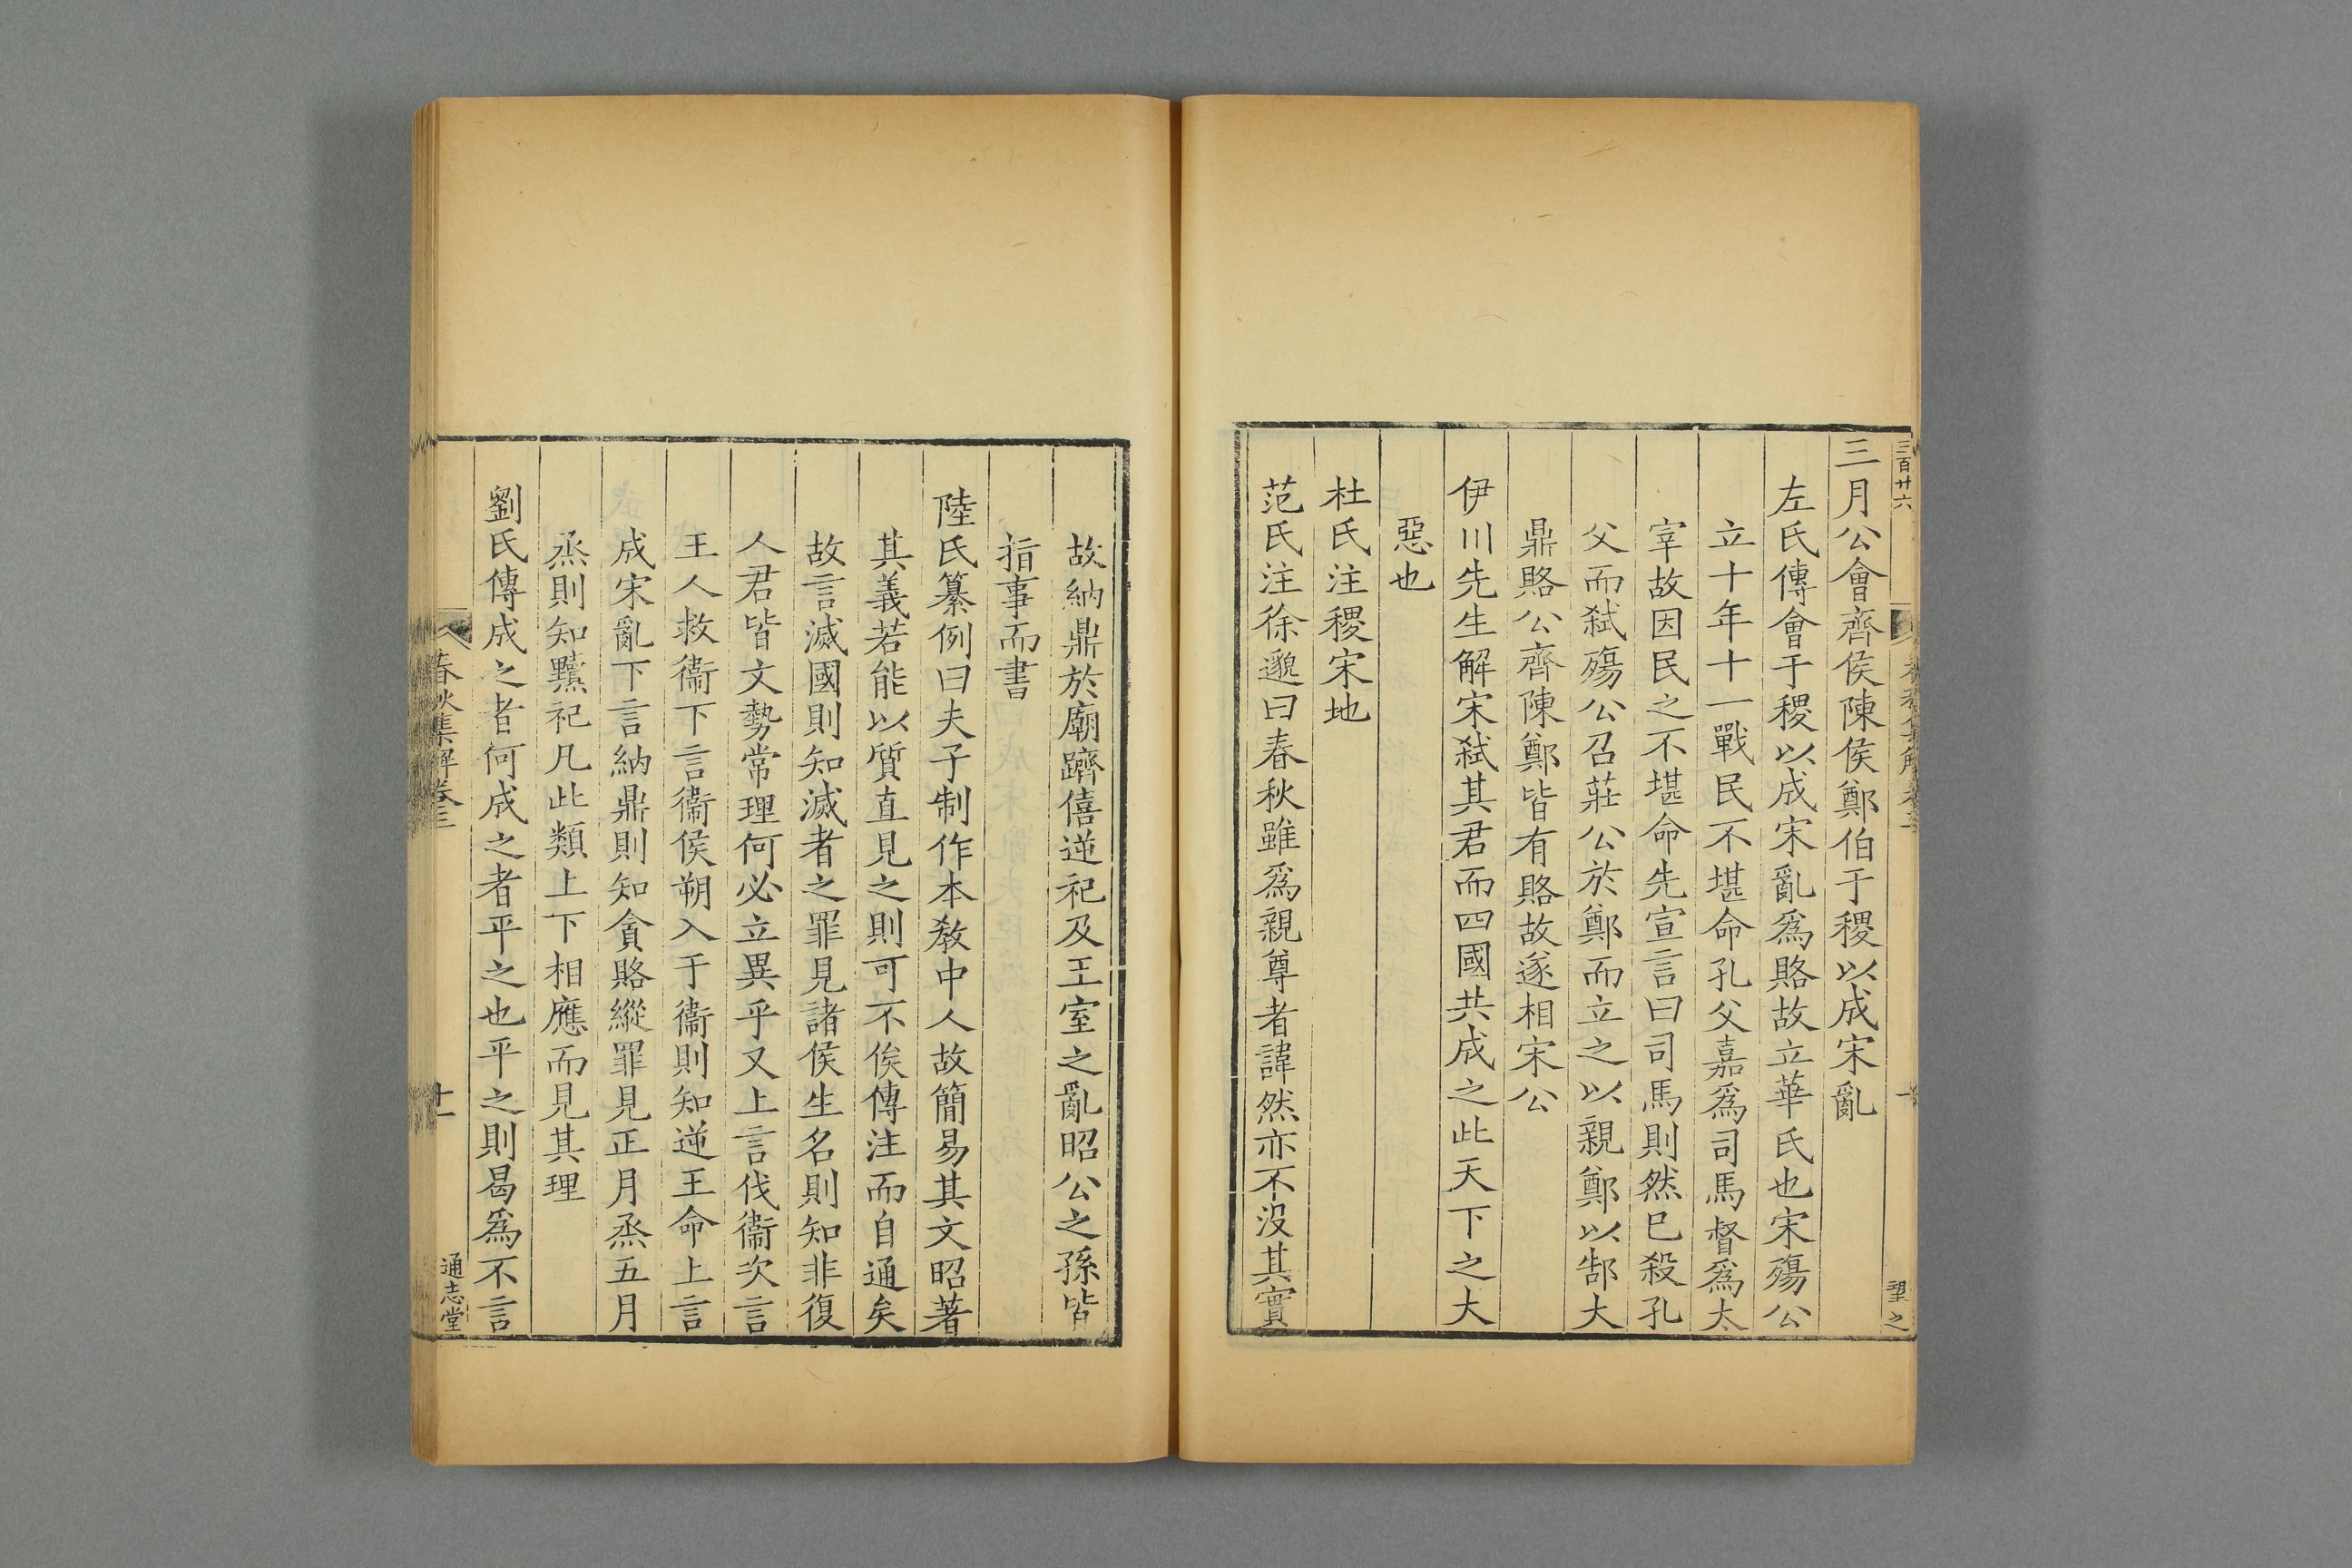 三百廿六
望之
三月公會齊侯陳侯鄭伯于稷以成宋亂
左氏傳會于稷以成宋亂爲賂故立華氏也宋殤公
立十年十一戰民不堪命孔父嘉爲司馬督爲太
宰故因民之不堪命先宣言曰司馬則然巳殺孔
父而弑殤公召莊公於鄭而立之以親鄭以郜大
鼎賂公齊陳鄭皆有賂故遂相宋公
伊川先生解宋弑其君而四國共成之此天下之大
惡也
杜氏注稷宋地
范氏注徐邈曰春秋雖爲親尊者諱然亦不沒其實
故納鼎於廟躋僖逆祀及王室之亂昭公之孫皆
指事而書
陸氏纂例曰夫子制作本教中人故簡易其文昭著
其義若能以質直見之則可不俟傳注而自通矣
故言滅國則知滅者之罪見諸侯生名則知非復
人君皆文勢常理何必立異乎又上言伐衞次言
王人救衞下言衞侯朔入于衞則知逆王命上言
成宋亂下言納鼎則知貪賂縱罪見正月烝五月
烝則知黷祀凡此類上下相應而見其理
劉氏傳成之者何成之者平之也平之則曷爲不言
春秋集解卷三
十一
通志堂